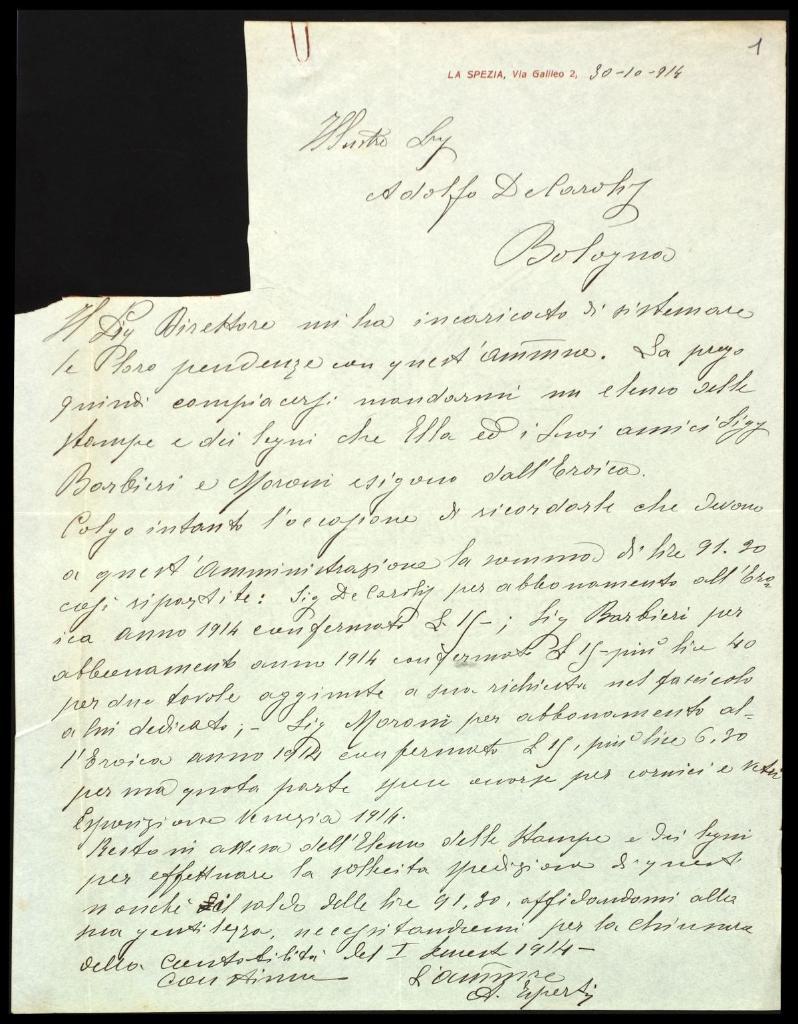 1
LA SPEZIA, Via Galileo 2, 30-10-914
Illustre Sig
Adolfo De Carolis
Bologna
Il Sig Direttore mi ha incaricato di sistemare
le Loro pendenze con quest'Ammne. La prego
quindi compiacersi mandarmi un elenco delle
stampe e dei legni che Ella ed i Suoi amici Sigg
Barbieri e Moroni esigono dall'Eroica.
Colgo intanto l'occasione di ricordarle che devono
a quest'Amministrazione la somma di lire 91.30
così ripartite: Sig De Carolis per abbonamento all'Ero-
ica anno 1914 confermato £ 15-; Sig Barbieri per
abbonamento anno 1914 confermato £ 15- più lire 40
per due tavole aggiunte a sua richiesta nel fascicolo
a lui dedicato; - Sig Moroni per abbonamento al-
l'Eroica anno 1914 confermato £ 15, più lire 6,30
per sua quota parte spese occorse per cornici e vetri
Esposizione Venezia 1914.
Resto in attesa dell'Elenco delle Stampe e dei legni
per effettuare la sollecita spedizione di questi
nonché il saldo delle lire 91,30, affidandomi alla
sua gentilezza, necessitandomi per la chiusura
della contabilità del I Semest 1914-
Con stima
L'ammre